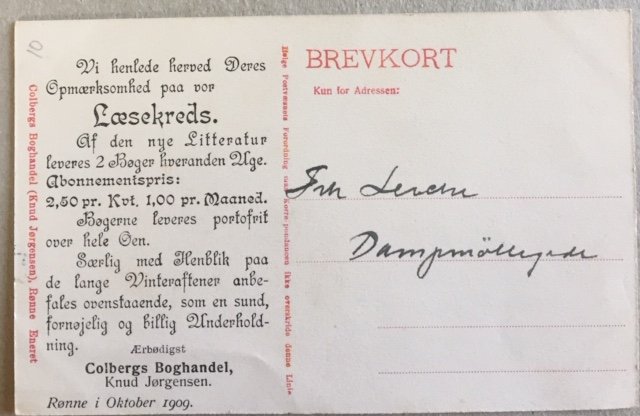 10
Vi henlede herved Deres
Opmærksomhed paa vor
Læsekreds.
Af den nye Litteratur
leveres 2 Bøger hveranden Uge.
Abonnementspris:
2,50 pr. Kvt. 1,00 pr. Maaned.
Bøgerne leveres portofrit
over hele Øen.
Særlig med Henblik paa
de lange Vinteraftener anbe-
fales ovenstaaende, som en sund,
fornøjelig og billig Underhold-
ning.
Ærbødigst
Colbergs Boghandel,
Knud Jørgensen.
Rønne i Oktober 1909.
Colbergs Boghandel (Knud Jørgensen), Rønne Eneret
Ifølge Postvæsnets Forordning maa Korrespondancen ikke overskride denne Linie
BREVKORT
Kun for Adressen:
Frk
Dampmøllegade